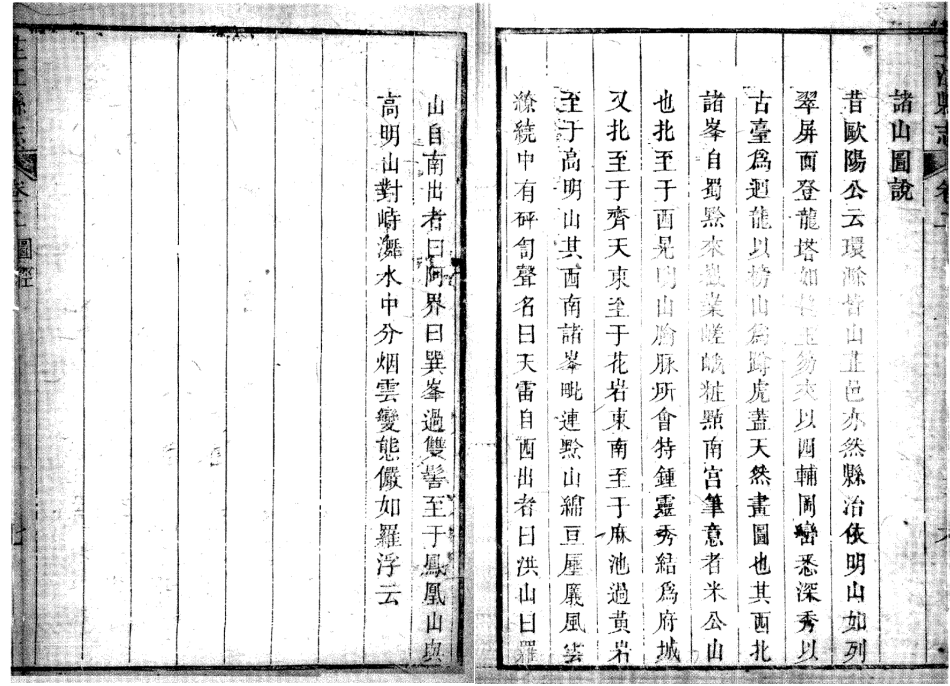 諸山圖說
昔歐陽公云環滁皆山芷邑亦然縣冶依明山如列
翠屏面登龍塔如拄玉笏夾以四輔岡巒悉深秀以
古臺爲迴龍以榜山爲蹲虎蓋天然畫圖也其西北
諸峯自蜀黔來嶪嵯峨粧點南宫筆意者米公山
也北至于酉晃明山脈所會特鍾靈秀結爲府城
又北至于齊天東至于花岩東南至于麻池過黃岩
至于高明山其西南諸峯毗連黔山綿亘層巖風雲
繚繞中有砰訇聲名曰天雷自西出者曰洪山曰羅
山自南出者曰阿界曰巽峯過雙髻至于鳳凰山與
高明山對峙潕水中分烟雲變態儼如羅浮云
圖